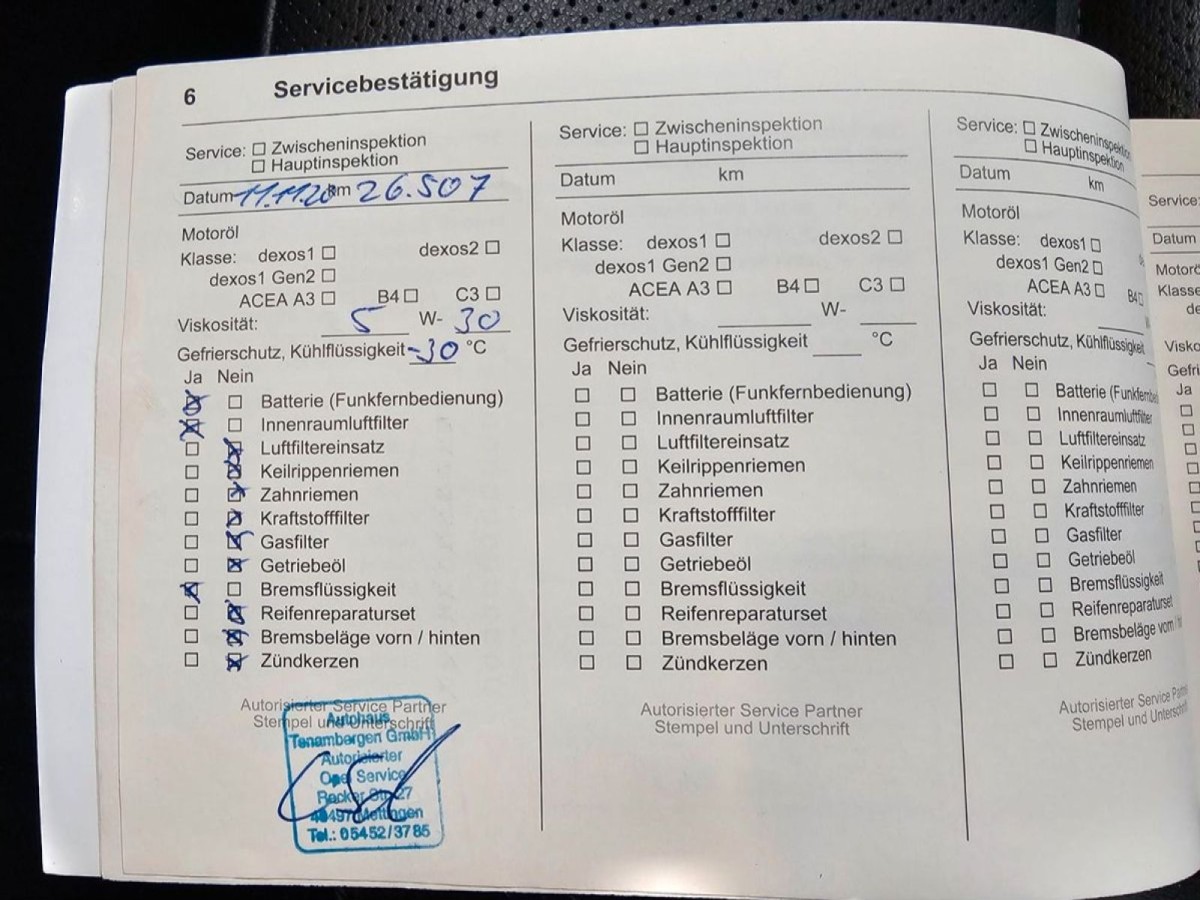 6 Servicebestätigung
Service: ☐ Zwischeninspektion
☐ Hauptinspektion
Datum 11.11.20 km 26.507
Motoröl
Klasse: dexos1 ☐ dexos2 ☐
dexos1 Gen2 ☐
ACEA A3 ☐ B4 ☐ C3 ☐
Viskosität: 5 W- 30
Gefrierschutz, Kühlflüssigkeit -30 °C
Ja Nein
☒ ☐ Batterie (Funkfernbedienung)
☒ ☐ Innenraumluftfilter
☐ ☒ Luftfiltereinsatz
☐ ☒ Keilrippenriemen
☐ ☒ Zahnriemen
☐ ☒ Kraftstofffilter
☐ ☒ Gasfilter
☐ ☒ Getriebeöl
☒ ☐ Bremsflüssigkeit
☐ ☒ Reifenreparaturset
☐ ☒ Bremsbeläge vorn / hinten
☐ ☒ Zündkerzen
Autorisierter Service Partner
Stempel und Unterschrift
Autohaus
Tenambergen GmbH
Autorisierter
Opel Service
Recker Str. 27
49497 Mettingen
Tel.: 05452/3785
Service: ☐ Zwischeninspektion
☐ Hauptinspektion
Datum km
Motoröl
Klasse: dexos1 ☐ dexos2 ☐
dexos1 Gen2 ☐
ACEA A3 ☐ B4 ☐ C3 ☐
Viskosität: W-
Gefrierschutz, Kühlflüssigkeit °C
Ja Nein
☐ ☐ Batterie (Funkfernbedienung)
☐ ☐ Innenraumluftfilter
☐ ☐ Luftfiltereinsatz
☐ ☐ Keilrippenriemen
☐ ☐ Zahnriemen
☐ ☐ Kraftstofffilter
☐ ☐ Gasfilter
☐ ☐ Getriebeöl
☐ ☐ Bremsflüssigkeit
☐ ☐ Reifenreparaturset
☐ ☐ Bremsbeläge vorn / hinten
☐ ☐ Zündkerzen
Autorisierter Service Partner
Stempel und Unterschrift
Service: ☐ Zwischeninspektion
☐ Hauptinspektion
Datum km
Motoröl
Klasse: dexos1 ☐
dexos1 Gen2 ☐
ACEA A3 ☐ B4 ☐
Viskosität:
Gefrierschutz, Kühlflüssigkeit
Ja Nein
☐ ☐ Batterie (Funkfernbe
☐ ☐ Innenraumluftfilter
☐ ☐ Luftfiltereinsatz
☐ ☐ Keilrippenriemen
☐ ☐ Zahnriemen
☐ ☐ Kraftstofffilter
☐ ☐ Gasfilter
☐ ☐ Getriebeöl
☐ ☐ Bremsflüssigkeit
☐ ☐ Reifenreparaturset
☐ ☐ Bremsbeläge vorn
☐ ☐ Zündkerzen
Autorisierter Service Part
Stempel und Unterschr
Service:
Datum
Motorö
Klasse
de
Visko
Gefri
Ja